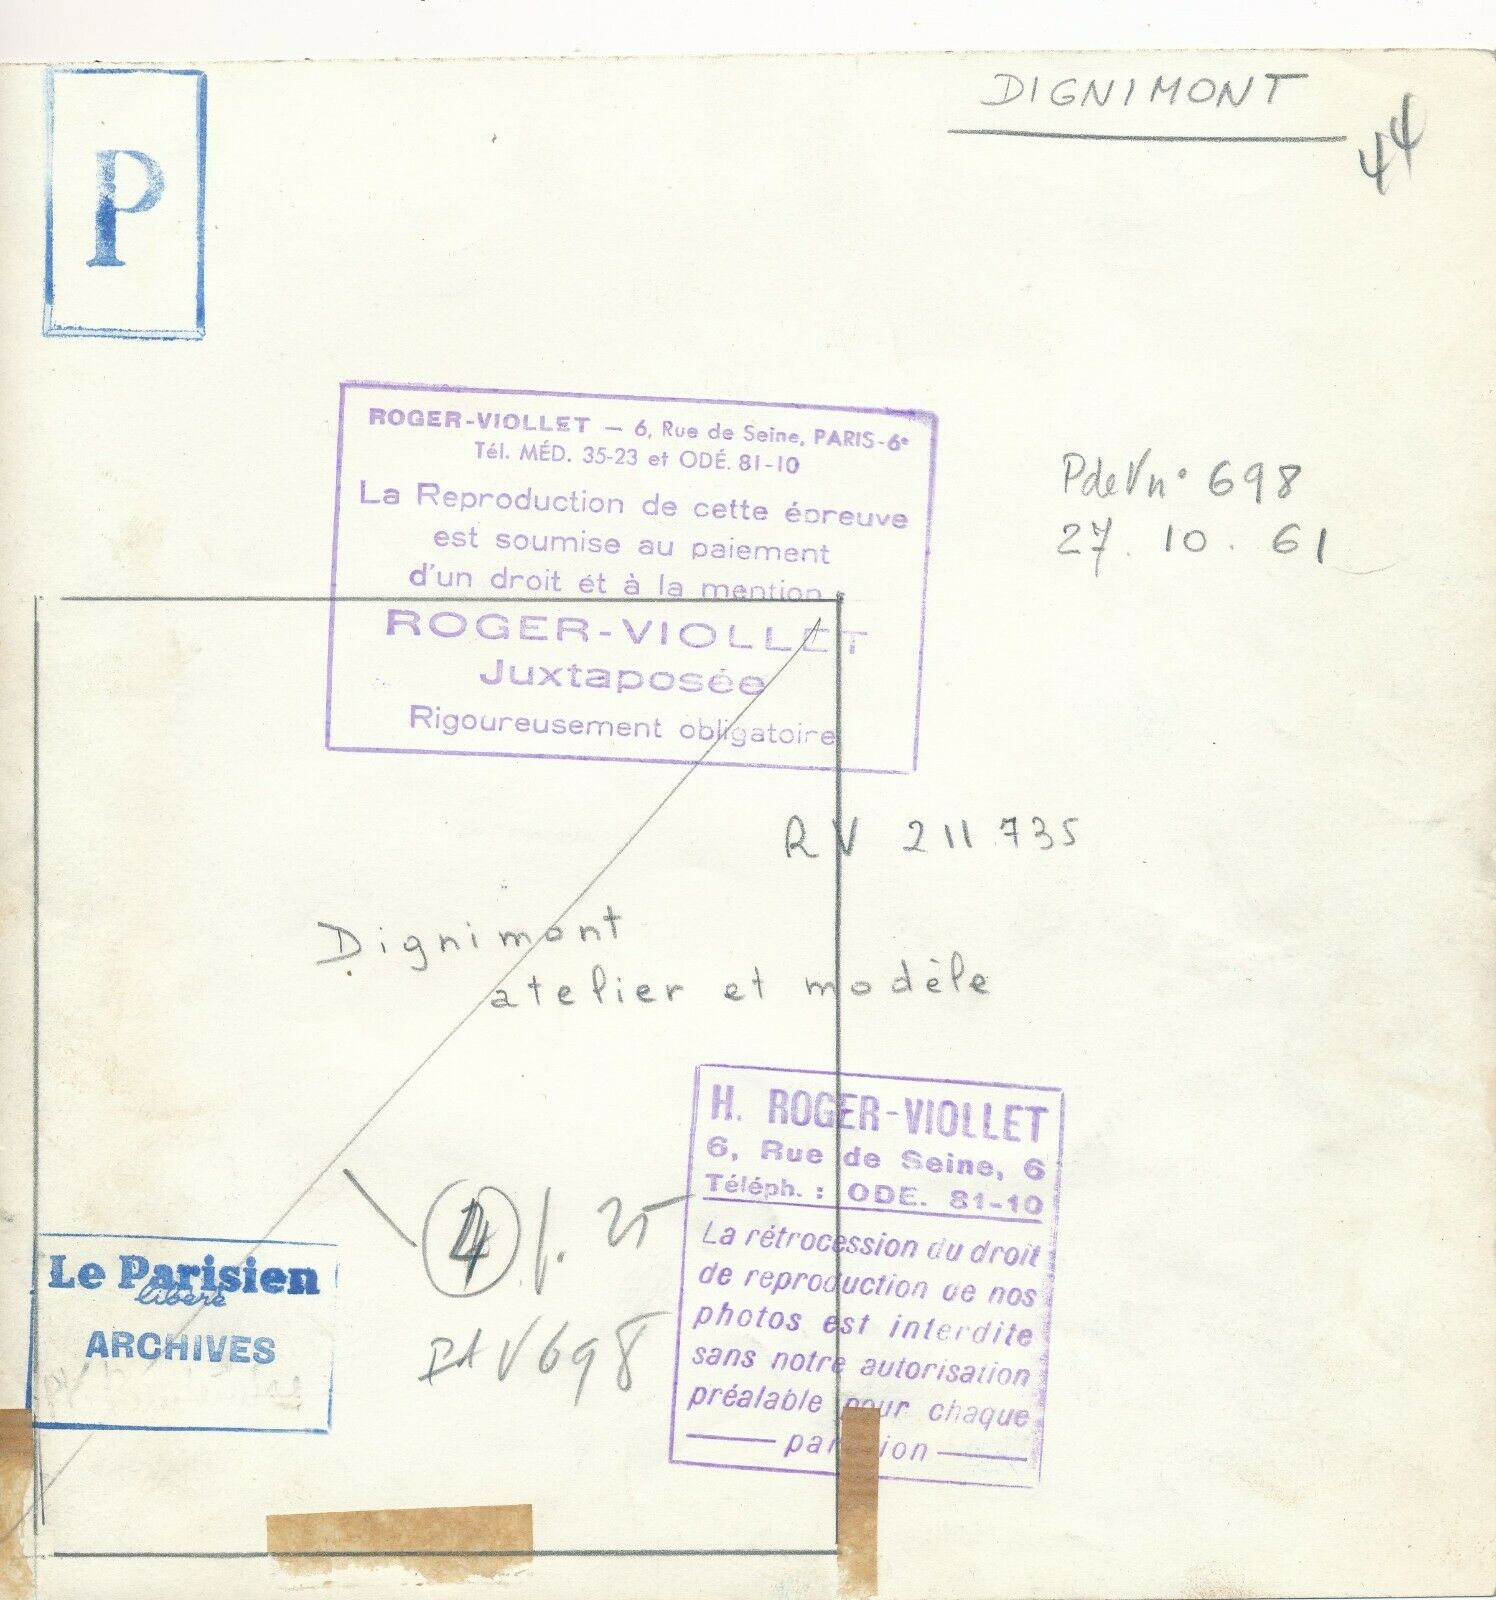 DIGNIMONT
44
P
ROGER-VIOLLET — 6, Rue de Seine, PARIS-6e
Tél. MÉD. 35-23 et ODÉ. 81-10
La Reproduction de cette épreuve
est soumise au paiement
d'un droit ét à la mention
ROGER-VIOLLET
Juxtaposée
Rigoureusement obligatoire
PdeVn° 698
27.10.61
RV 211.735
Dignimont
atelier et modèle
H. ROGER-VIOLLET
6, Rue de Seine, 6
Téléph. : ODE. 81-10
La rétrocession du droit
de reproduction de nos
photos est interdite
sans notre autorisation
préalable pour chaque
4
25
V698
Le Parisien
libéré
ARCHIVES